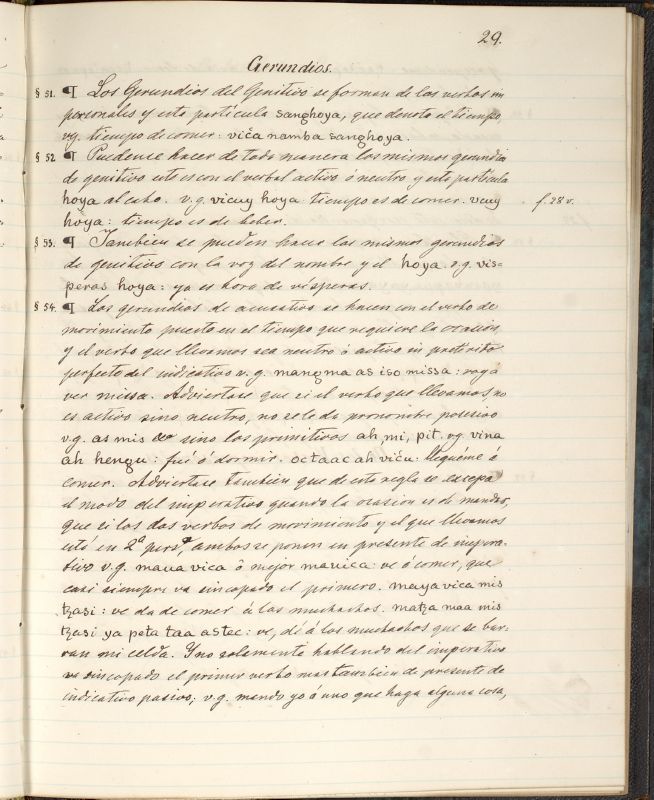 29.
Gerundios.
§ 51. ¶ Los Gerundios del Genitivo se forman de los verbos im
personales y esta partícula sanghoya, que denota el tiempo,
vg. tiempo de comer: viĉa namba sanghoya.
§ 52 ¶ Puedense hacer de toda manera los mismos gerundios
de genitivo esto es con el verbal activo ó neutro y esta partícula
hoya al cabo. v.g. vicuy hoya tiempo es de comer. vcuy f. 28 v.
hoya: tiempo es de beber.
§ 53. ¶ Tambien se pueden hacer los mismos gerundios
de genitivos con la voz del nombre y el hoya. v.g. vis=
peras hoya: ya es hora de visperas.
§ 54. ¶ Los gerundios de acusativo se hacen con el verbo de
movimiento puesto en el tiempo que requiere la oracion
y el verbo que llevamos sea neutro ó activo in preterito
perfecto del indicativo v.g. mangma as iso missa: voy á
ver missa. Adviertase que si el verbo que llevamos, no
es activo sino neutro, no se le da pronombre posesivo
v.g. as mis sino los primitivos ah, mi, pit. vg. vina
ah hengu: fué ó dormir. octaac ah viĉu: lleguéme á
comer. Adviertase tambien que de esta regla se excepa
el modo del imperativo quando la ocasion es de mandar,
que si los dos verbos de movimiento y el que llevamos
está en 2ª persª ambos se ponen en presente de impera-
tivo v.g. maua vica ô mejor mavica: ve ó comer, que
casi siempre va sincopado el primero. maya vica mis
tzasi: ve da de comer á las muchachos. matza maa mis
tzasi ya peta taa astec: ve, di á los muchachos que se bar-
ran mi celda. Y no solamente hablando del imperativo
va sincopado el primer verbo mas tambien de presente de
indicativo pasivo; v.g. mando yo á uno que haga alguna cosa,